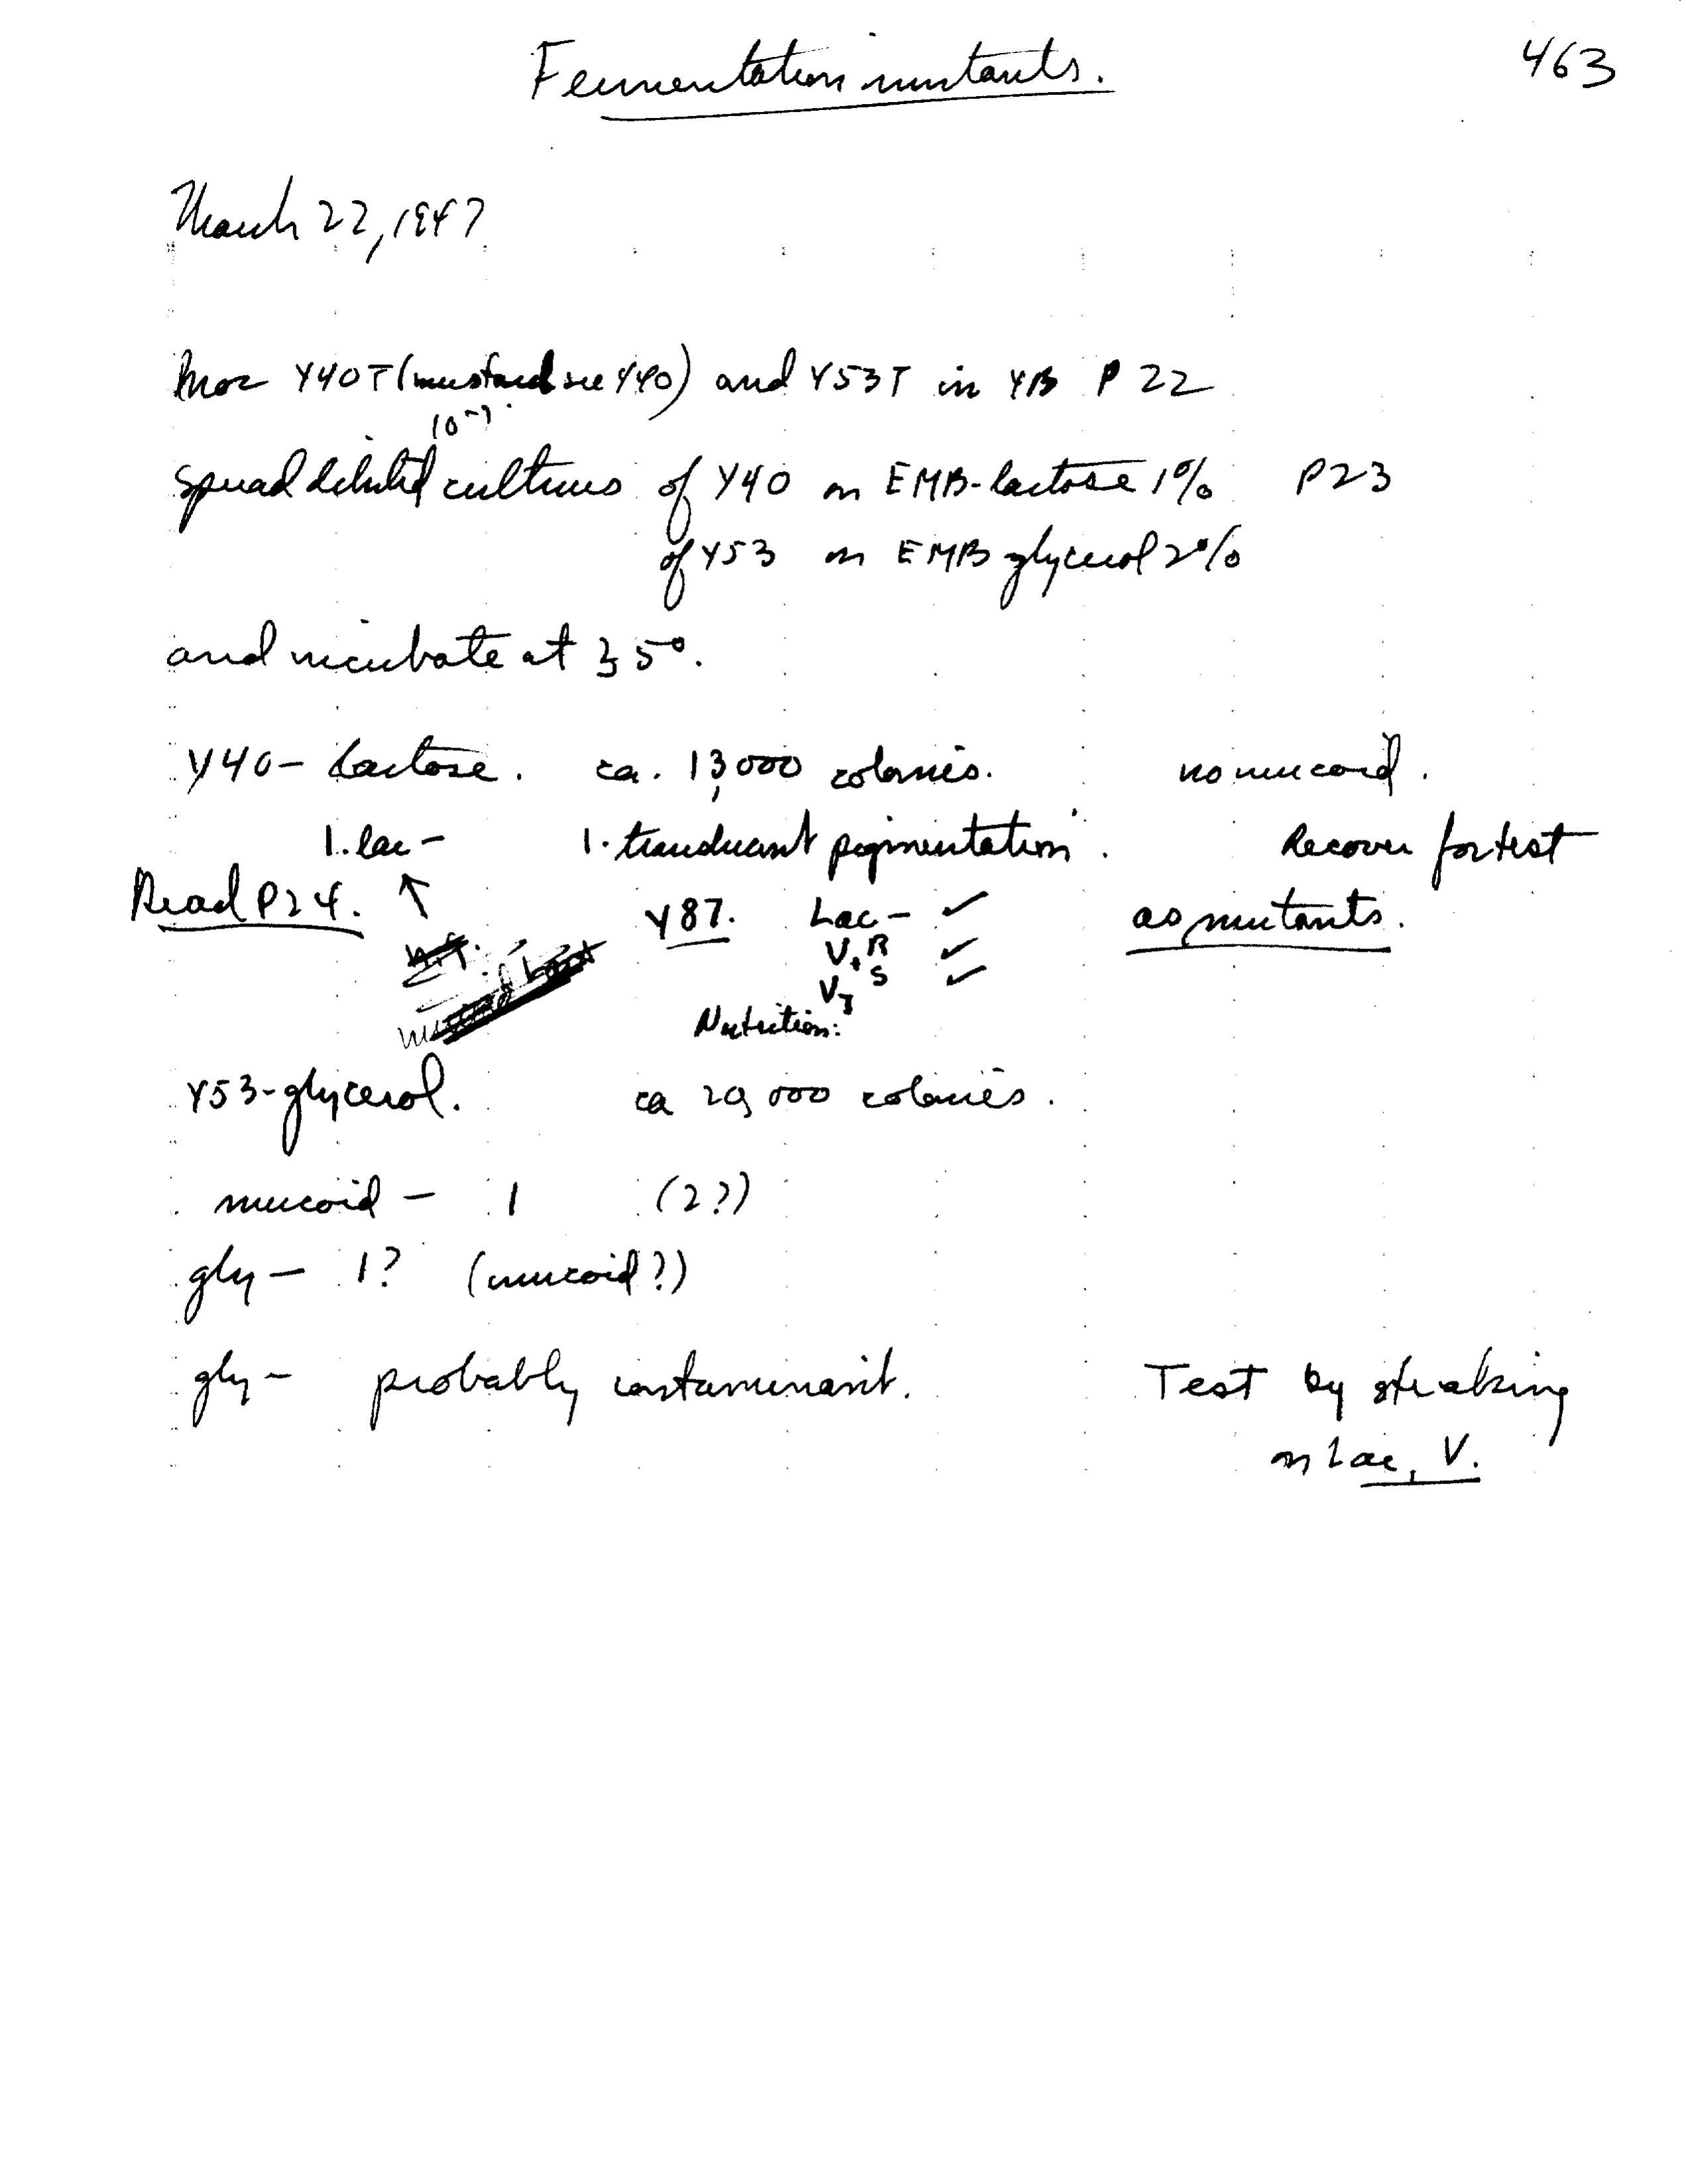 463
Fermentation mutants.
March 22, 1947
Inoc Y40T (mustard see 440) and Y53T in YB P 22
10⁻⁷
Spread diluted cultures of Y40 on EMB-lactose 1% P23
of Y53 on EMB glycerol 2%
and incubate at 35°.
Y40 - Lactose. ca. 13,000 colonies. no mucoid.
1. lac - 1. pigmentation. Recover for test
Read P24. ↑ Y87. Lac - ✓ as mutants.
V₁ᴿ ✓
ˢ ✓
Nutrition:
Y53-glycerol. ca 20,000 colonies.
mucoid - 1 (2?)
gly - 1? (mucoid?)
gly - probably contaminant. Test by streaking
on Lac, V.